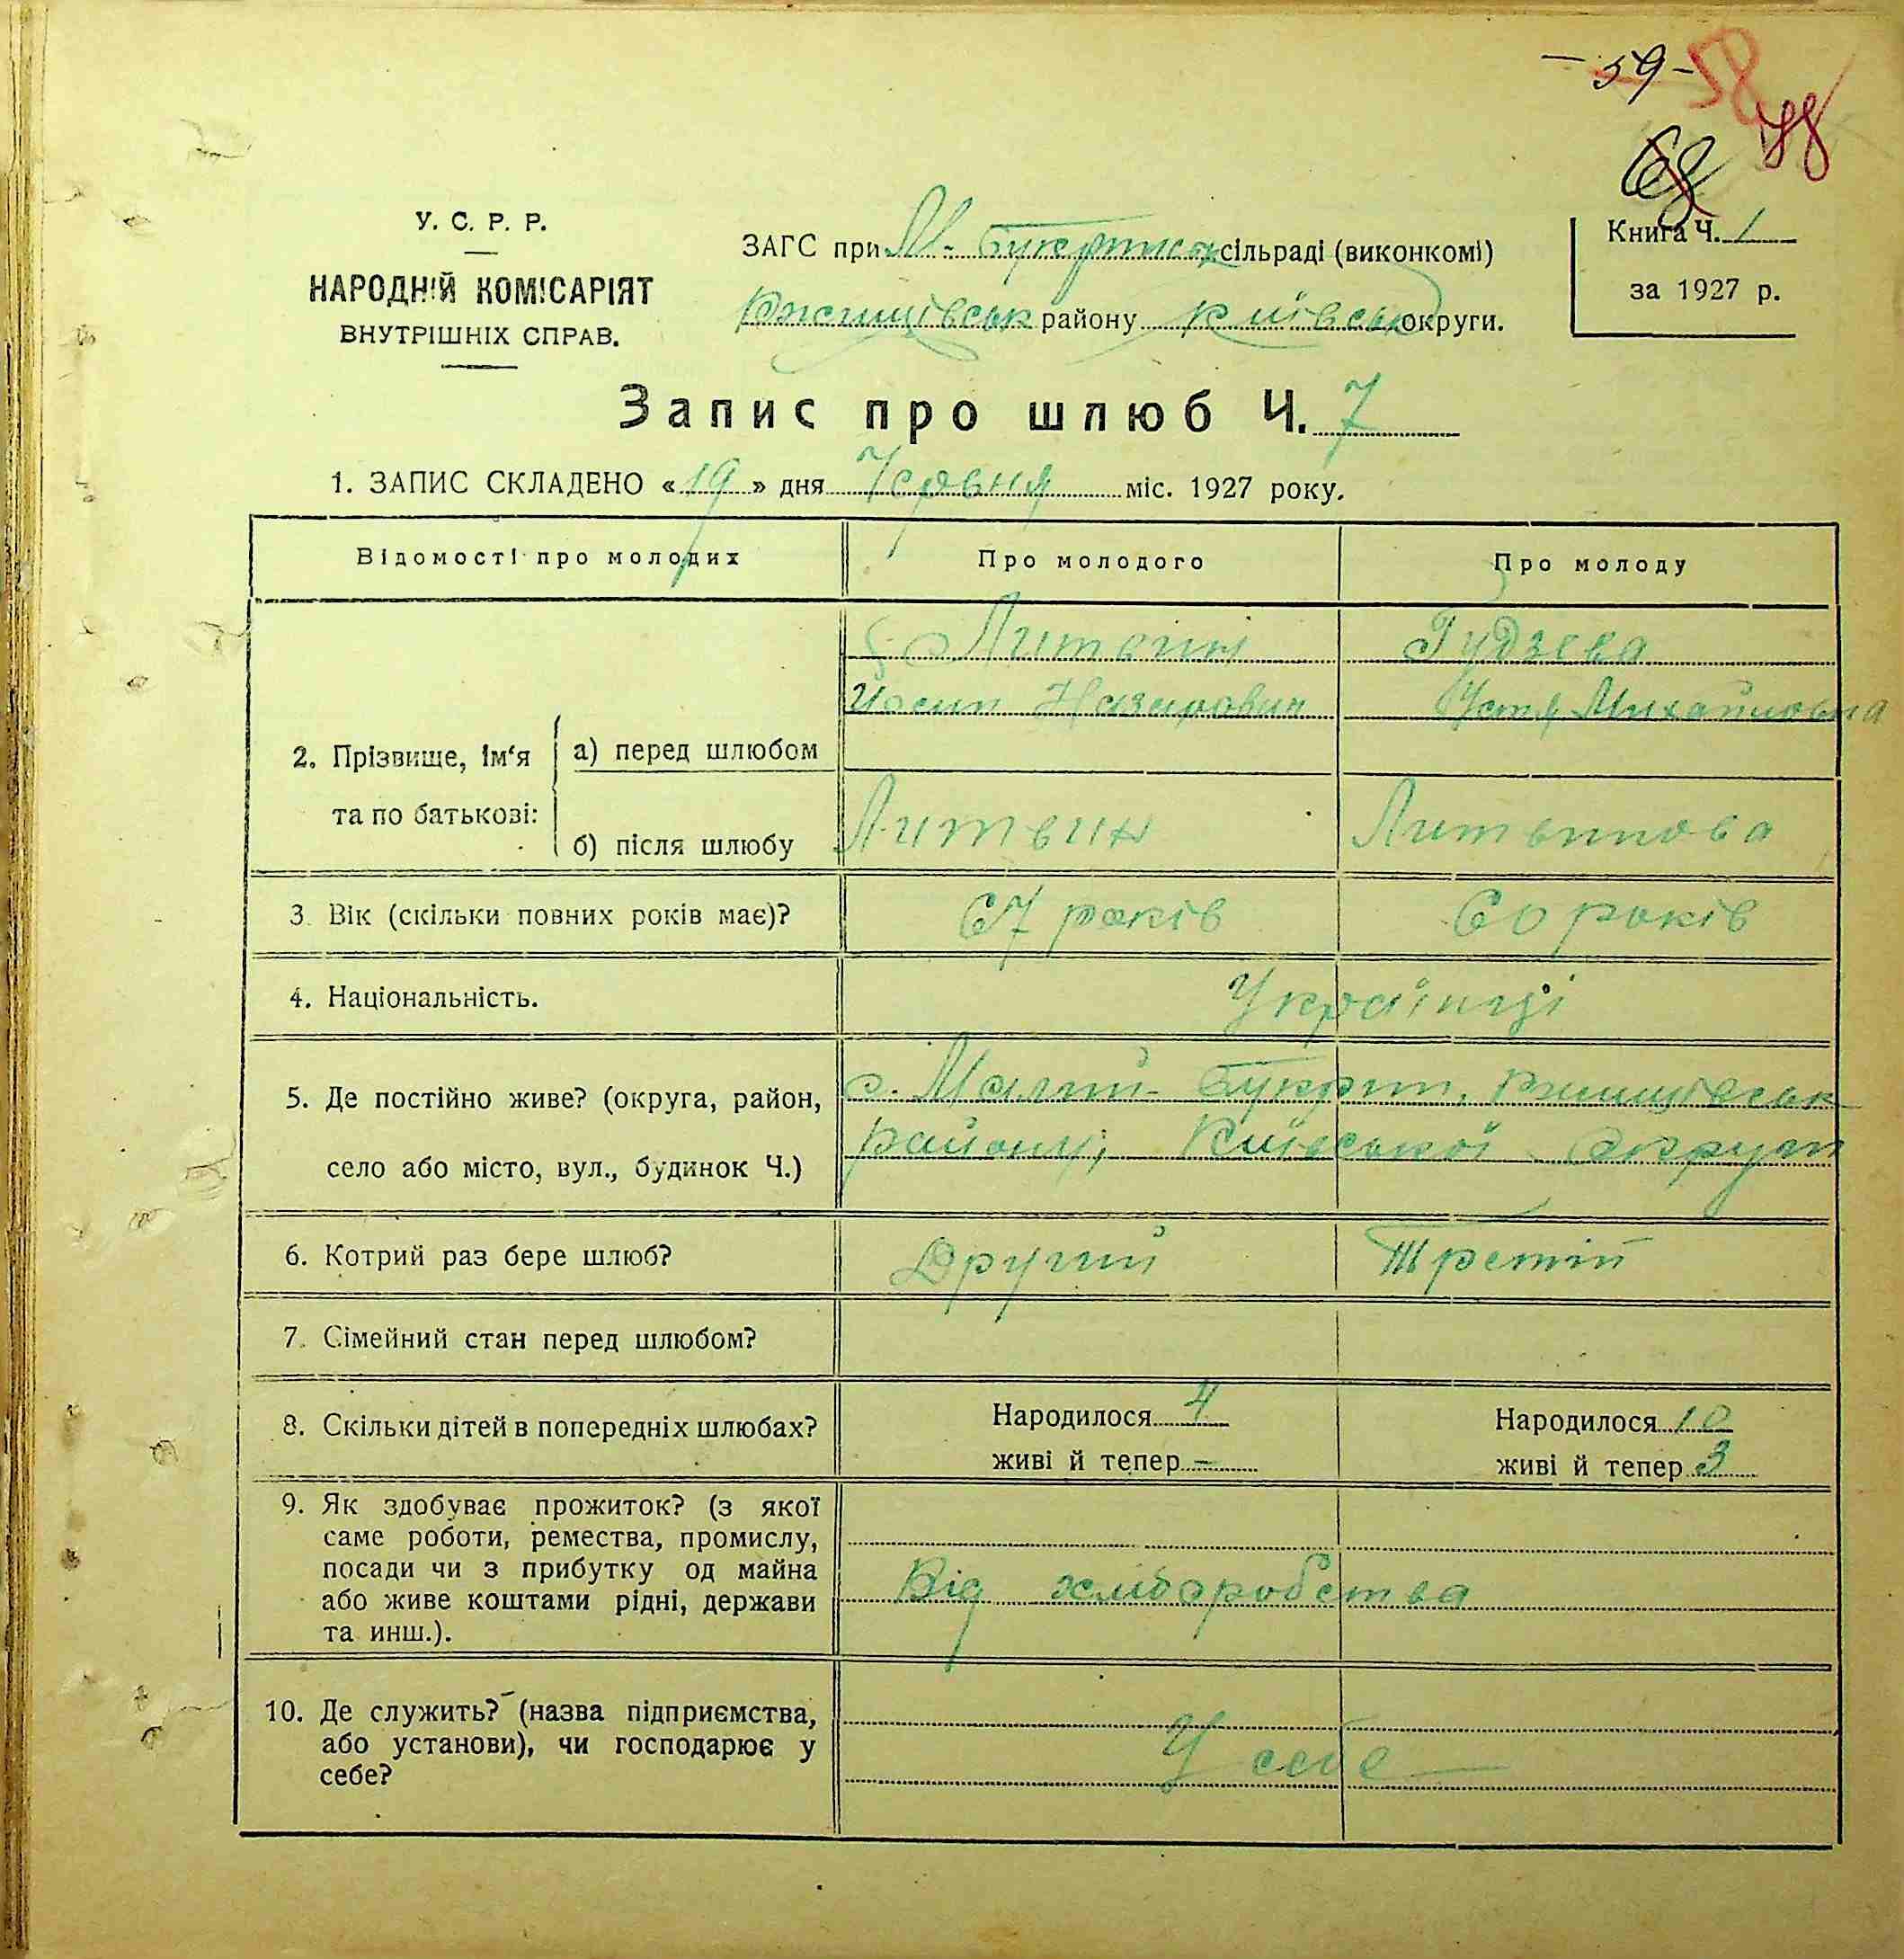 - 59 - 58
68 78
У. С. Р. Р.
НАРОДНІЙ КОМІСАРІЯТ
ВНУТРІШНІХ СПРАВ.
ЗАГС при М-Букринськ сільраді (виконкомі)
Ржищівськ району Київськ округи.
Книга Ч. 1
за 1927 р.
Запис про шлюб Ч. 7
1. ЗАПИС СКЛАДЕНО «19» дня Червня міс. 1927 року.
Відомості про молодих Про молодого Про молоду
2. Прізвище, ім'я та по батькові:
а) перед шлюбом
Литвин Гудзева
Йосип Назарович Устя Михайловна
б) після шлюбу Литвин Литвинова
3. Вік (скільки повних років має)? 67 років 60 років
4. Національність. Українці
5. Де постійно живе? (округа, район, с. Малий-Букрин, Ржищівськ
село або місто, вул., будинок Ч.) району, Київської округи
6. Котрий раз бере шлюб? Другий Третій
7. Сімейний стан перед шлюбом?
8. Скільки дітей в попередніх шлюбах? Народилося 4 Народилося 10
живі й тепер - живі й тепер 3
9. Як здобуває прожиток? (з якої
саме роботи, ремества, промислу,
посади чи з прибутку од майна
або живе коштами рідні, держави Від хліборобства
та инш.).
10. Де служить? (назва підприємства,
або установи), чи господарює у У себе
себе?